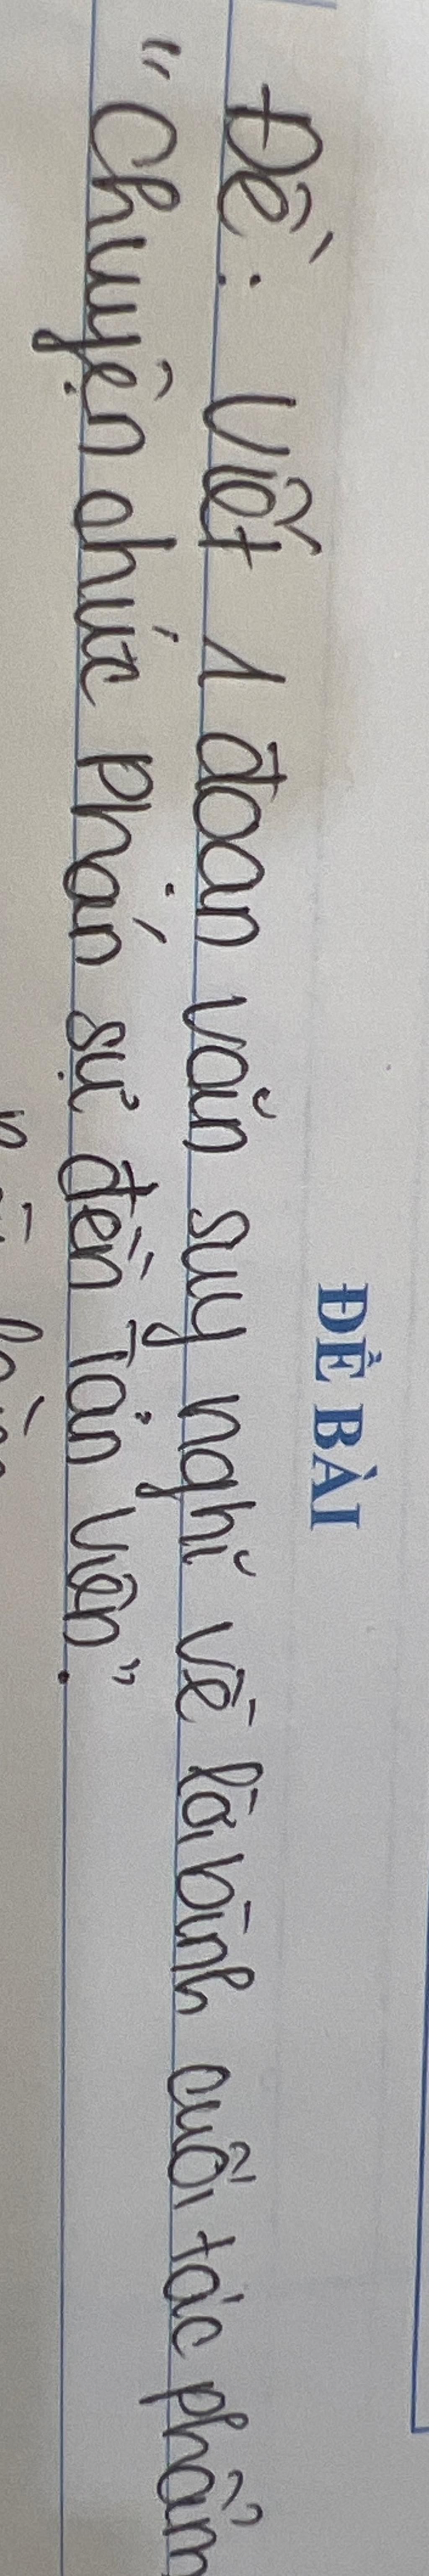 ĐỀ BÀI
Đề: Viết 1 đoạn văn suy nghĩ về lời bình cuối tác phẩm
"Chuyện chức Phán sự đền Tản Viên".